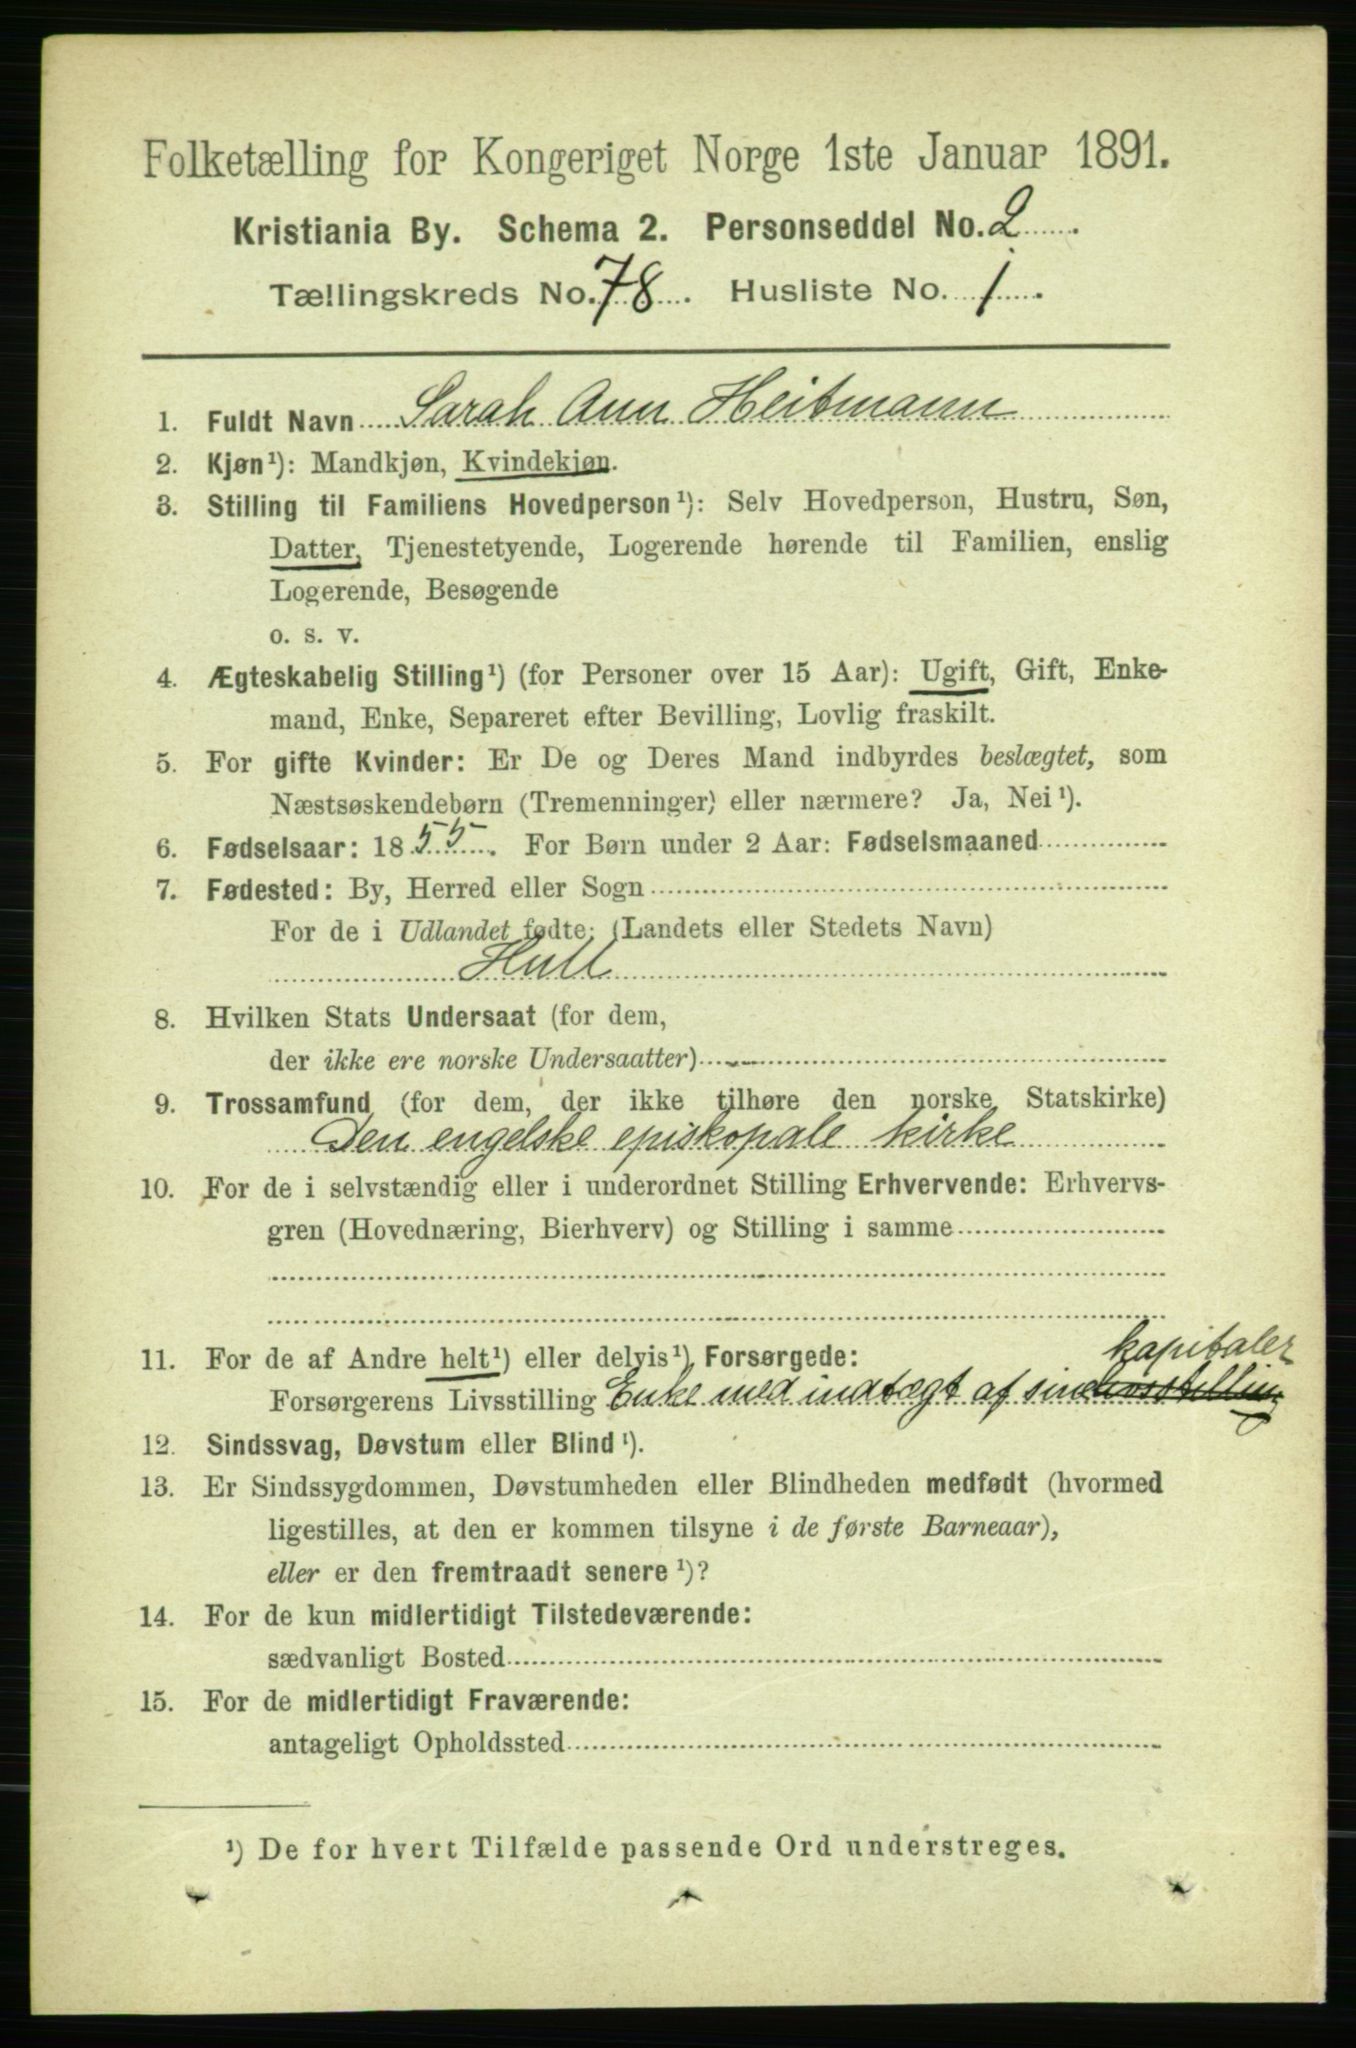 Folketælling for Kongeriget Norge 1ste Januar 1891.
Kristiania By. Schema 2. Personseddel No. 2
Tællingskreds No. 78. Husliste No. 1
1. Fuldt Navn Sarah Ann Heitmann
2. Kjøn¹): Mandkjøn, Kvindekjøn.
3. Stilling til Familiens Hovedperson¹): Selv Hovedperson, Hustru, Søn,
Datter, Tjenestetyende, Logerende hørende til Familien, enslig
Logerende, Besøgende
o. s. v.
4. Ægteskabelig Stilling¹) (for Personer over 15 Aar): Ugift, Gift, Enke-
mand, Enke, Separeret efter Bevilling, Lovlig fraskilt.
5. For gifte Kvinder: Er De og Deres Mand indbyrdes beslægtet, som
Næstsøskendebørn (Tremenninger) eller nærmere? Ja, Nei¹).
6. Fødselsaar: 1855. For Børn under 2 Aar: Fødselsmaaned
7. Fødested: By, Herred eller Sogn
For de i Udlandet fødte: (Landets eller Stedets Navn)
Hull
8. Hvilken Stats Undersaat (for dem,
der ikke ere norske Undersaatter)
9. Trossamfund (for dem, der ikke tilhøre den norske Statskirke)
Den engelske episkopale kirke
10. For de i selvstændig eller i underordnet Stilling Erhvervende: Erhvervs-
gren (Hovednæring, Bierhverv) og Stilling i samme
kapitaler
11. For de af Andre helt¹) eller delvis¹) Forsørgede:
Forsørgerens Livsstilling Enke med indtægt af sine livsstilling
12. Sindssvag, Døvstum eller Blind¹).
13. Er Sindssygdommen, Døvstumheden eller Blindheden medfødt (hvormed
ligestilles, at den er kommen tilsyne i de første Barneaar),
eller er den fremtraadt senere¹)?
14. For de kun midlertidigt Tilstedeværende:
sædvanligt Bosted
15. For de midlertidigt Fraværende:
antageligt Opholdssted
¹) De for hvert Tilfælde passende Ord understreges.